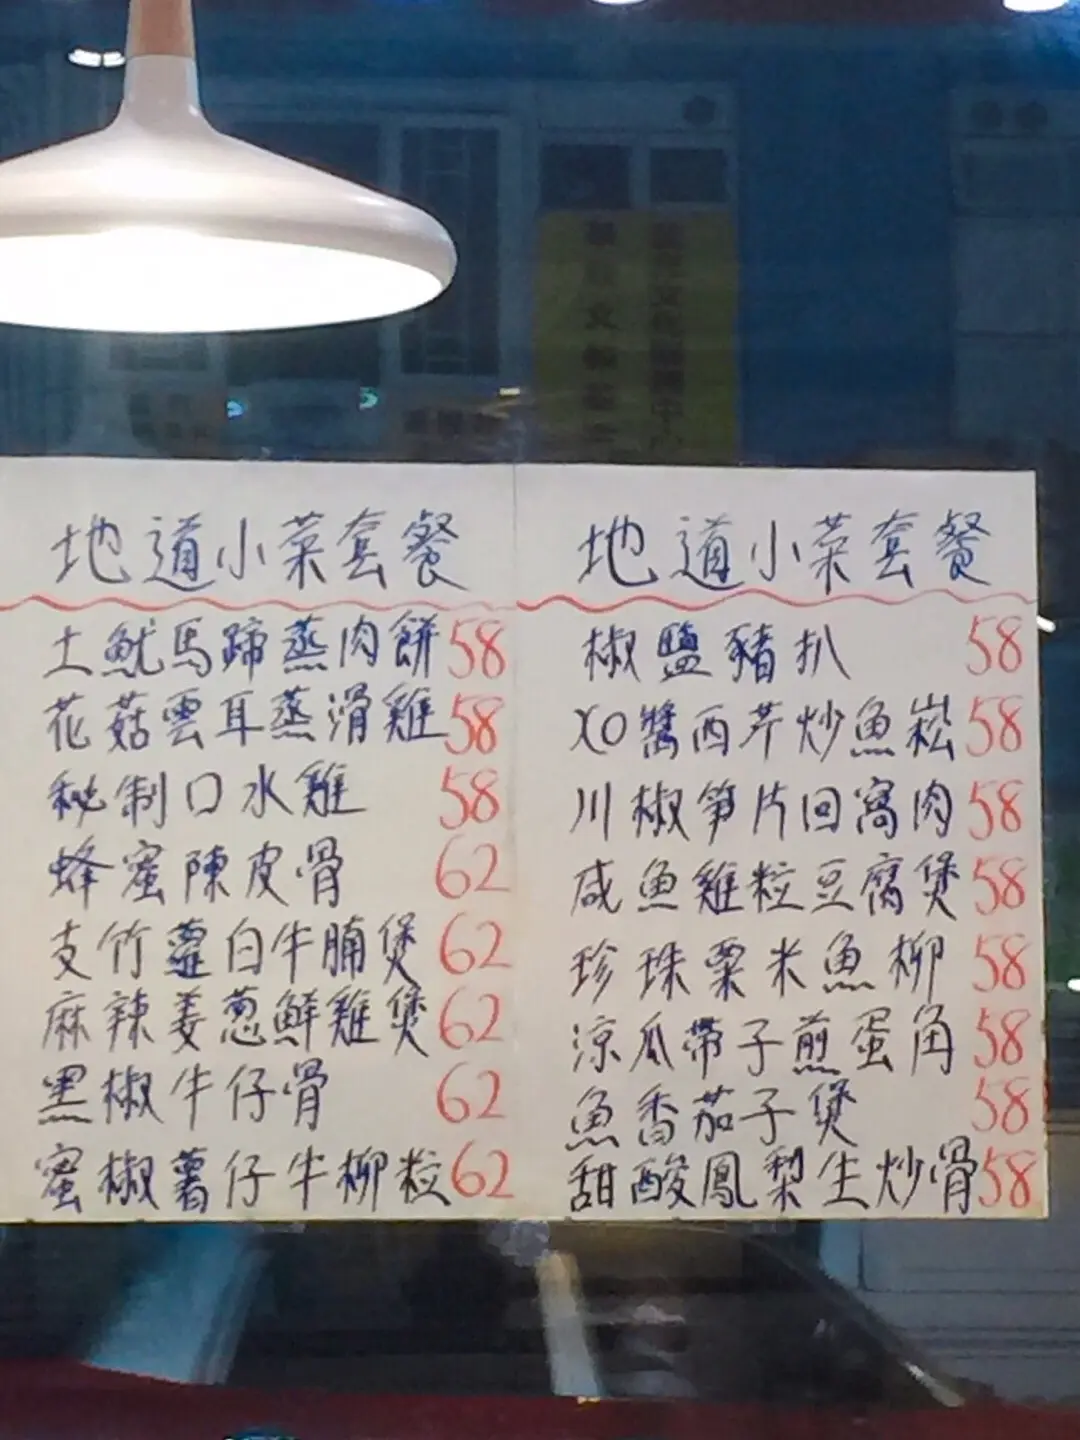 地道小菜套餐
土魷馬蹄蒸肉餅 58
花菇雲耳蒸滑雞 58
秘制口水雞 58
蜂蜜陳皮骨 62
支竹蘿白牛腩煲 62
麻辣姜葱鮮雞煲 62
黑椒牛仔骨 62
蜜椒薯仔牛柳粒 62
地道小菜套餐
椒鹽豬扒 58
XO醬西芹炒魚崧 58
川椒笋片回窩肉 58
咸魚雞粒豆腐煲 58
珍珠粟米魚柳 58
涼瓜帶子煎蛋角 58
魚香茄子煲 58
甜酸鳳梨生炒骨 58